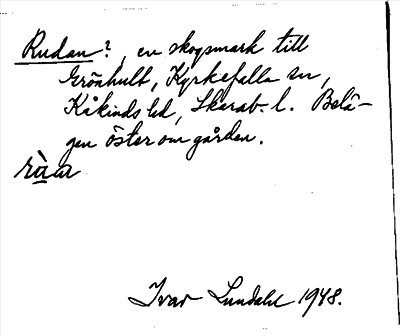 Rudan?, en skogsmark till
Grönhult, Kyrkefalla sn,
Kåkinds hd, Skarab. l. Belä-
gen öster om gården.
ràar
Ivar Lundahl 1948.